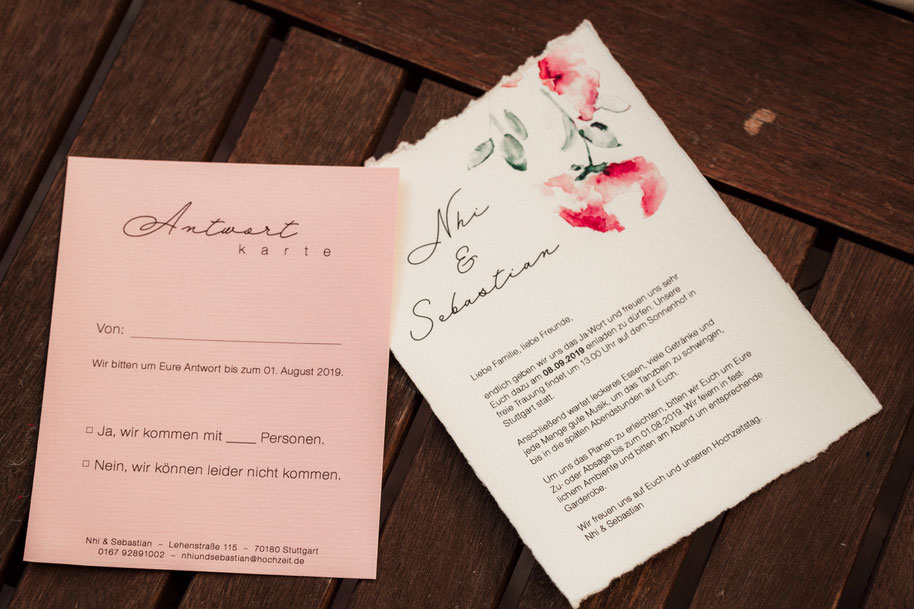 Antwort
karte
Von:
Wir bitten um Eure Antwort bis zum 01. August 2019.
Ja, wir kommen mit ____ Personen.
Nein, wir können leider nicht kommen.
Nhi & Sebastian – Lehenstraße 115 – 70180 Stuttgart
0167 92891002 – nhiundsebastian@hochzeit.de
Nhi
&
Sebastian
Liebe Familie, liebe Freunde,
endlich geben wir uns das Ja-Wort und freuen uns sehr
Euch dazu am 08.09.2019 einladen zu dürfen. Unsere
freie Trauung findet um 13.00 Uhr auf dem Sonnenhof in
Stuttgart statt.
Anschließend wartet leckeres Essen, viele Getränke und
jede Menge gute Musik, um das Tanzbein zu schwingen,
bis in die späten Abendstunden auf Euch.
Um uns das Planen zu erleichtern, bitten wir Euch um Eure
Zu- oder Absage bis zum 01.08.2019. Wir feiern in fest-
lichem Ambiente und bitten am Abend um entsprechende
Garderobe.
Wir freuen uns auf Euch und unseren Hochzeitstag.
Nhi & Sebastian